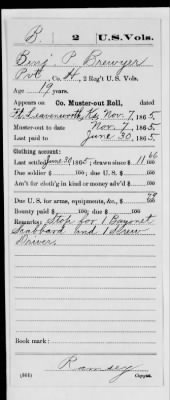 B. 2 U.S. Vols.
Benj P. Brewyer
Pvt, Co. H, 2 Reg't U. S. Vols.
Age 19 years.
Appears on Co. Muster-out Roll, dated
Ft. Leavenworth, Ks, Nov. 7, 1865.
Muster-out to date Nov. 7, 1865.
Last paid to June 30, 1865.
Clothing account:
Last settled June 30, 1865; drawn since $ 11 66/100
Due soldier $ 100; due U. S. $ 100
Am't for cloth'g in kind or money adv'd $ 100
Due U. S. for arms, equipments, &c., $ 78/100
Bounty paid $ 100; due $ 100
Remarks: Stop for 1 Bayonet
Scabbard and 1 Screw
Driver.
Book mark:
Ramsey
Copyist.